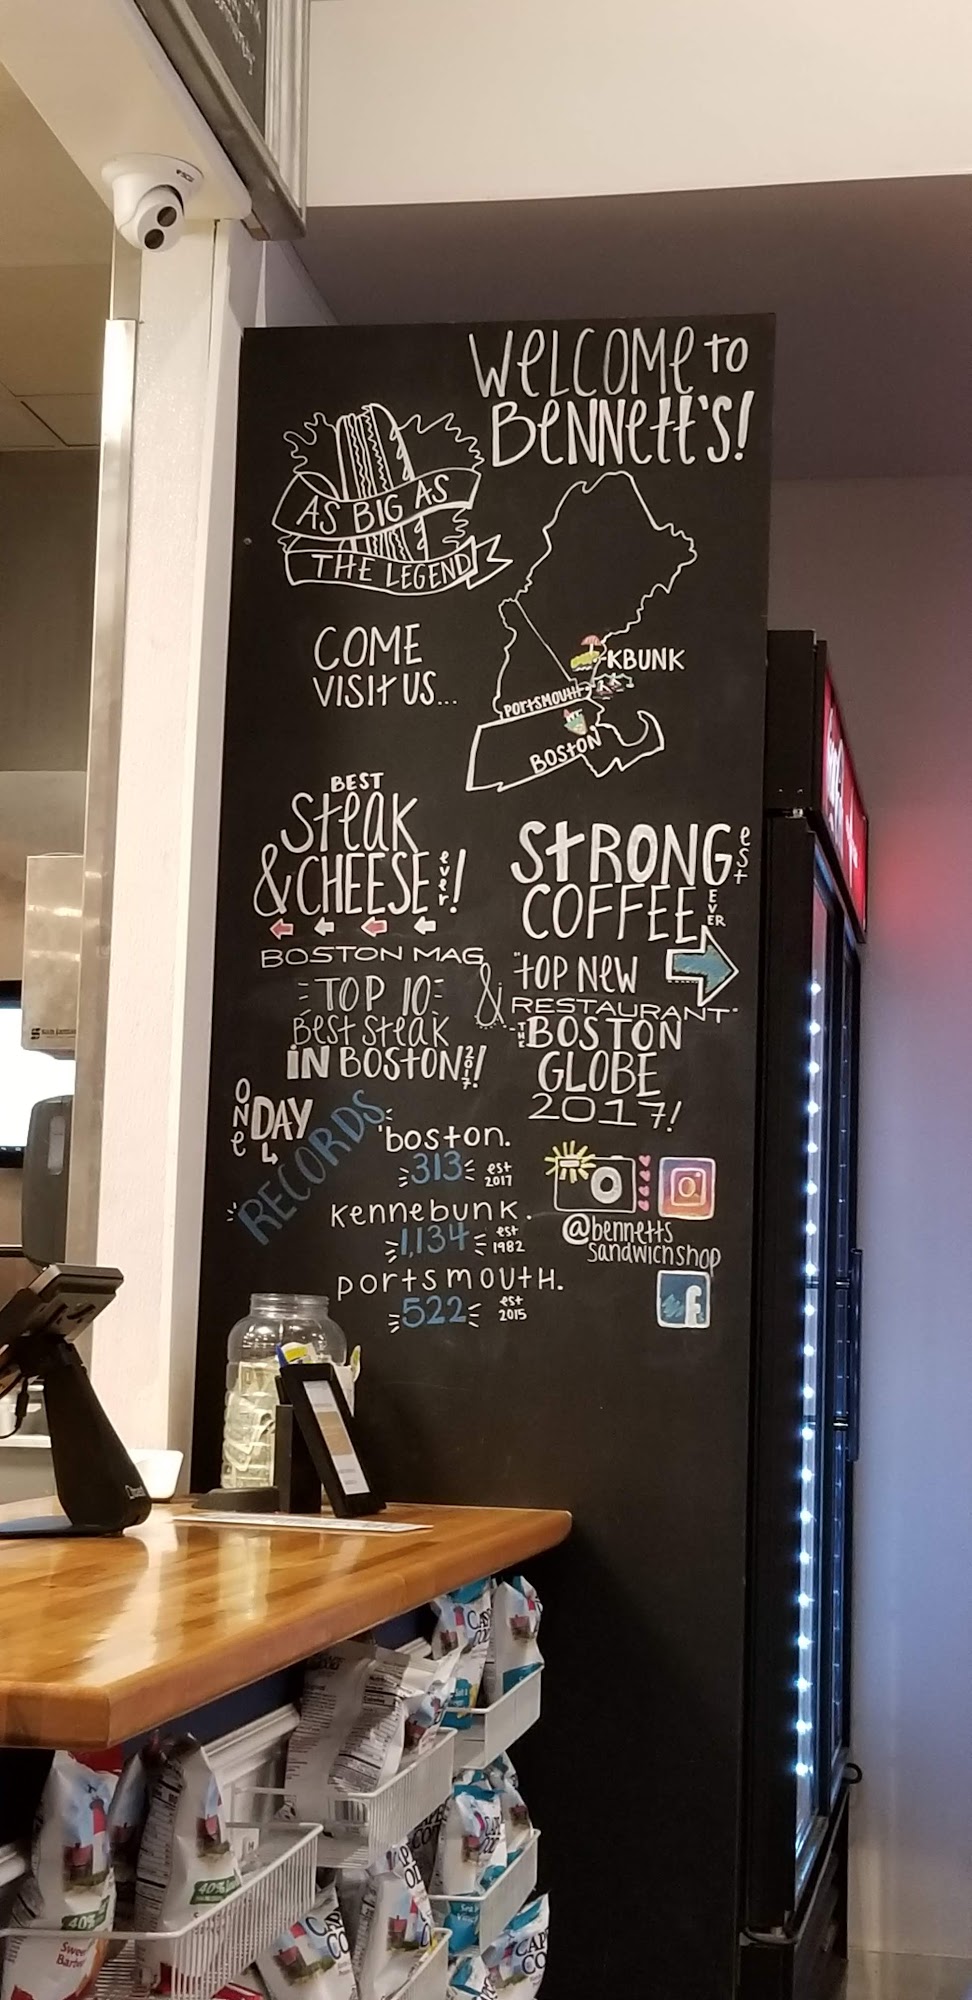 WELCOME TO
BENNETT'S!
AS BIG AS
THE LEGEND
COME
VISIT US...
KBUNK
PORTSMOUTH
BOSTON
BEST
STEAK
& CHEESE ever!
BOSTON MAG
TOP 10
BEST STEAK
IN BOSTON 2017!
&
STRONGEST
COFFEE EVER
"TOP NEW
RESTAURANT"
-THE BOSTON
GLOBE
2017!
ONE DAY
RECORDS
boston.
313 est 2017
kennebunk.
1,134 est 1982
portsmouth.
522 est 2015
@bennetts
sandwichshop
f
CAPE COD
40%
CAPE COD
40%
Sweet